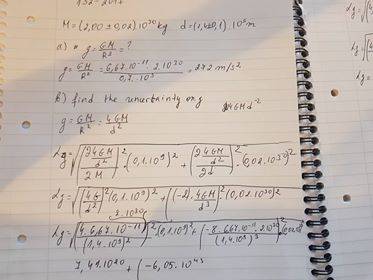 M = (2,00 ± 0,02) 10^30 kg d = (1,4±0,1) . 10^9 m
a) g = GM/R² = ?
g = GM/R² = 6,67.10^-11 . 2.10^30 / 0,7.10^9 = 272 m/s²
b) find the uncertainty on g
g = GM/R² = 4GM/d² 4GMd^-2
αg = √((∂ 4GM/d² / ∂M)² . (0,1.10^9)² + (∂ 4GM/d² / ∂d)² . (0,02.10^30)²
αg = √((4G/d²)² . (0,1.10^9)² + ((-2) . 4GM/d³)² . (0,02.10^30)²
2.10^30
αg = √((4.6,67.10^-11/(1,4.10^9)²)² (0,1.10^9)² + (-8.6,67.10^-11.2.10^30/(1,4.10^9)³)²
7,41.10^20 + (-6,05.10^43